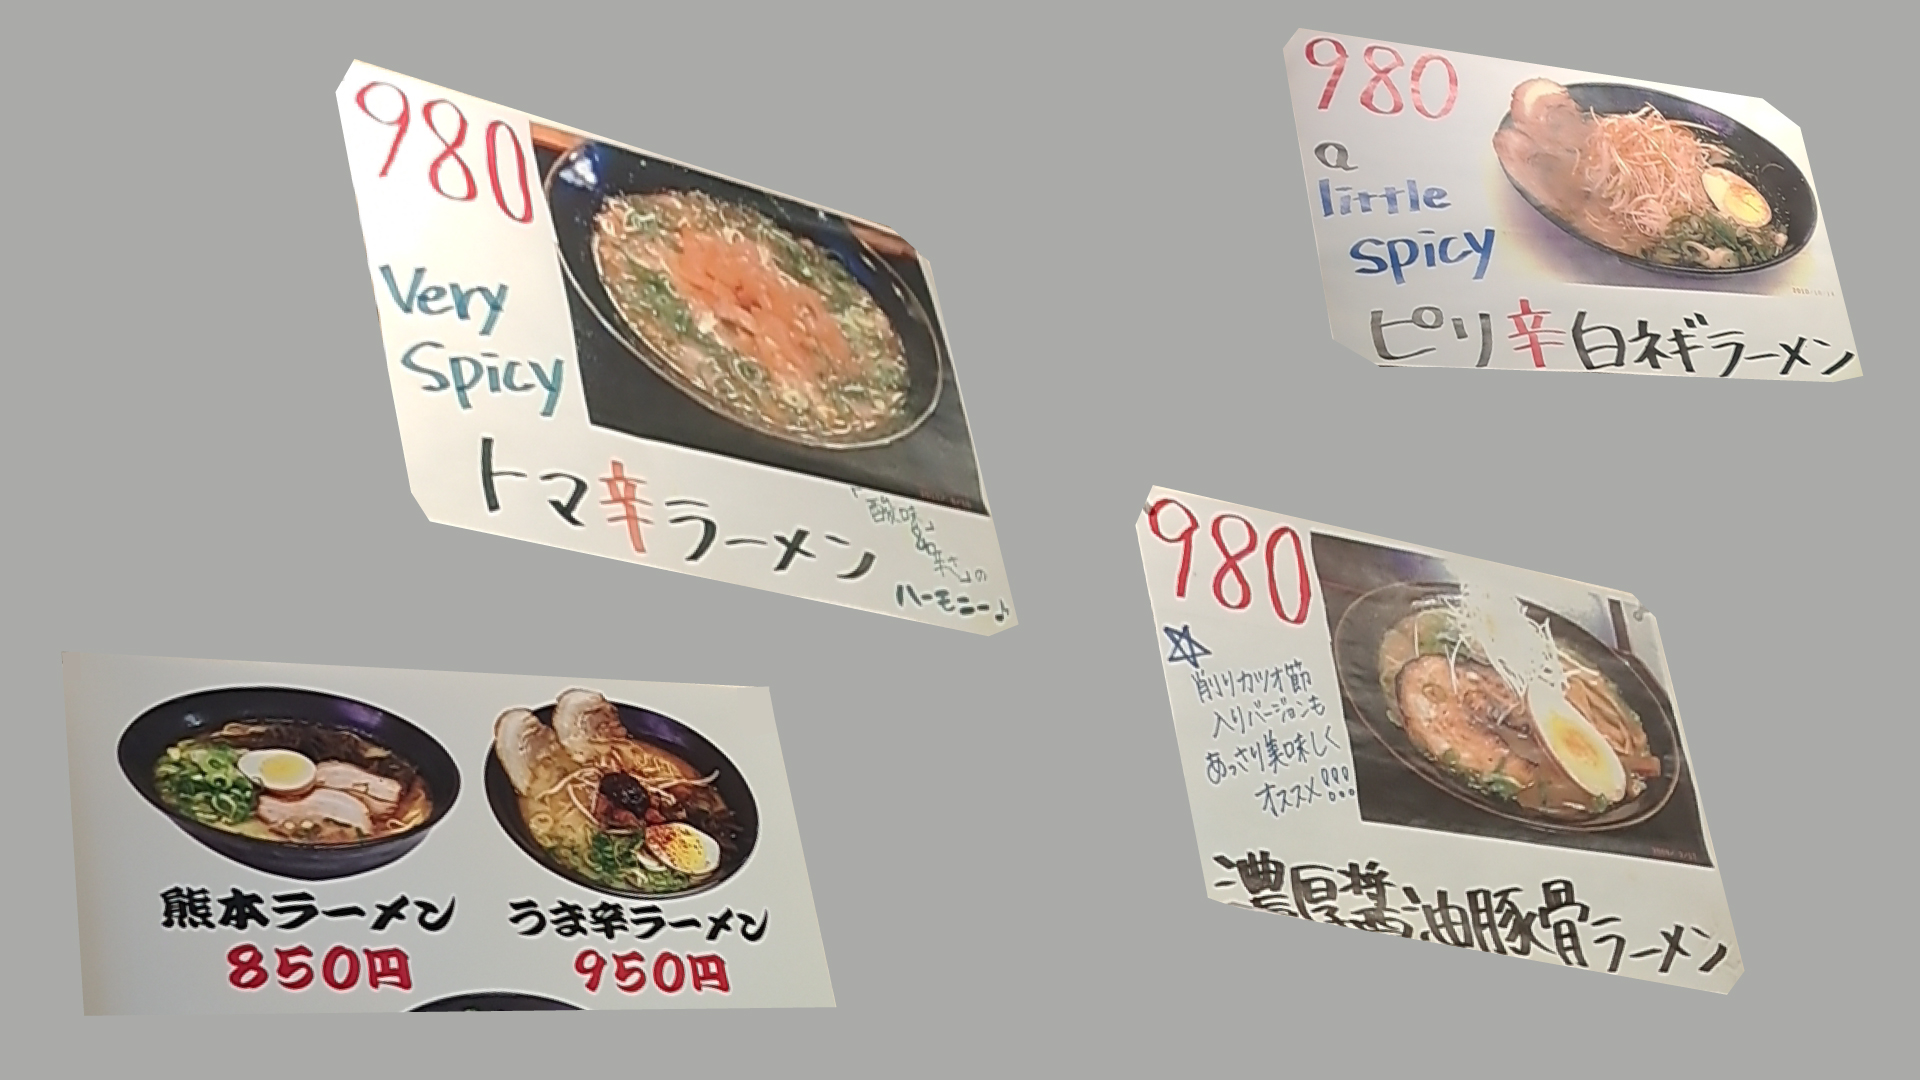 980
Very
Spicy
トマ辛ラーメン
「酸味」
「辛さ」の
ハーモニー♪
980
a
little
spicy
ピリ辛白ネギラーメン
熊本ラーメン
850円
うま辛ラーメン
950円
980
☆
削りカツオ節
入りバージョンも
あっさり美味しく
オススメ!!!
濃厚醤油豚骨ラーメン